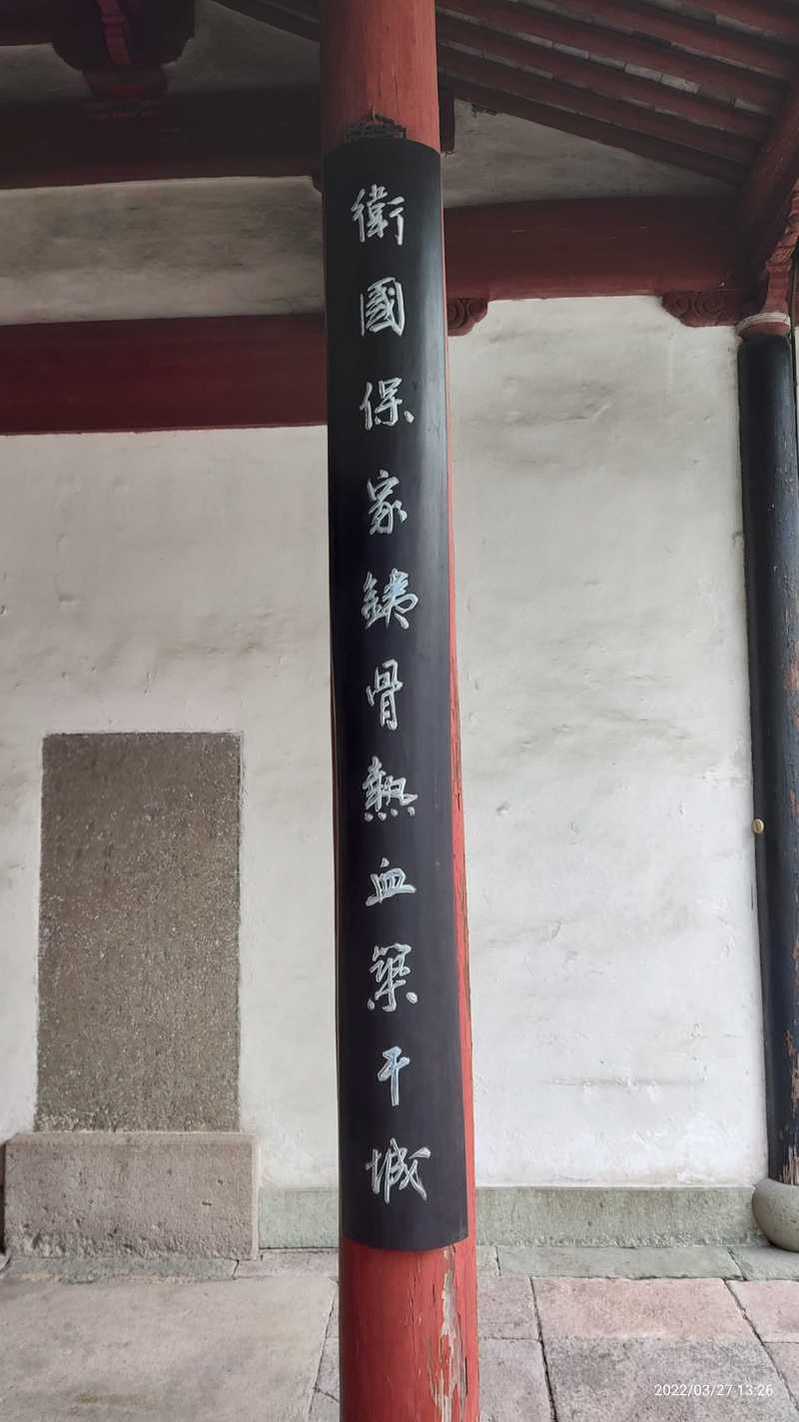 衛國保家鐵骨熱血築干城
2022/03/27 13:26